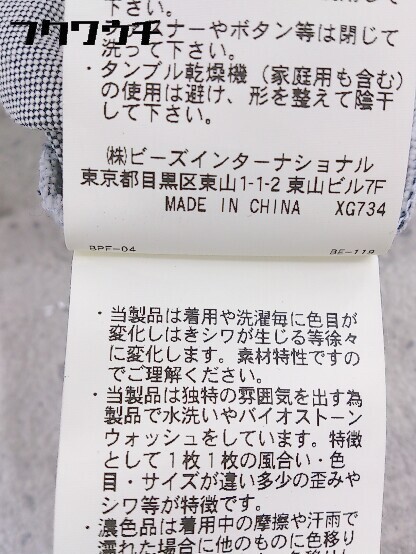 フクワウチ
ファスナーやボタン等は閉じて
洗って下さい。
・タンブル乾燥機（家庭用も含む）
の使用は避け、形を整えて陰干
して下さい。
㈱ビーズインターナショナル
東京都目黒区東山1-1-2 東山ビル7F
MADE IN CHINA XG734
BPF-04 BE-118
・当製品は着用や洗濯毎に色目が
変化しはきシワが生じる等徐々
に変化します。素材特性ですの
でご理解ください。
・当製品は独特の雰囲気を出す為
製品で水洗いやバイオストーン
ウォッシュをしています。特徴
として1枚1枚の風合い・色
目・サイズが違い多少の歪みや
シワ等が特徴です。
・濃色品は着用中の摩擦や汗雨で
濡れた場合に他のものに色移り